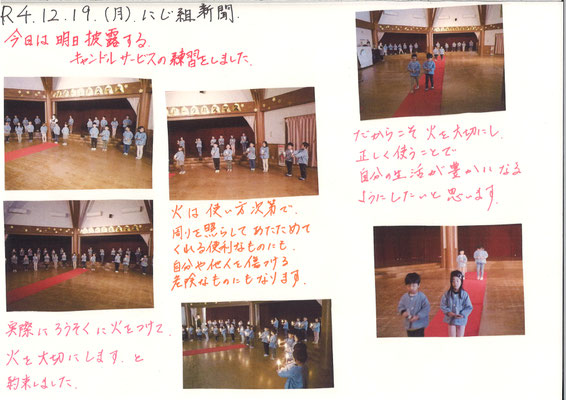 R4.12.19.(月).にじ組新聞.
今日は明日披露する.
キャンドルサービスの練習をしました.
火は使い方次第で.
周りを照らしてあたためて
くれる便利なものにも.
自分や他人を傷つける
危険なものにもなります.
実際にろうそくに火をつけて.
火を大切にします.と
約束しました.
だからこそ火を大切にし.
正しく使うことで
自分の生活が豊かになる
ようにしたいと思います.